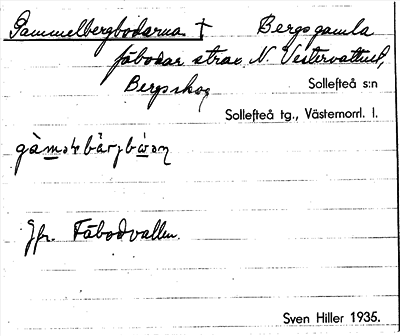 Gammelbergbodarna † Bergs gamla
fäbodar strax N. Västervattnet,
Bergskog
Sollefteå s:n
Sollefteå tg., Västernorrl. l.
Jfr. Fäbodvallen.
Sven Hiller 1935.